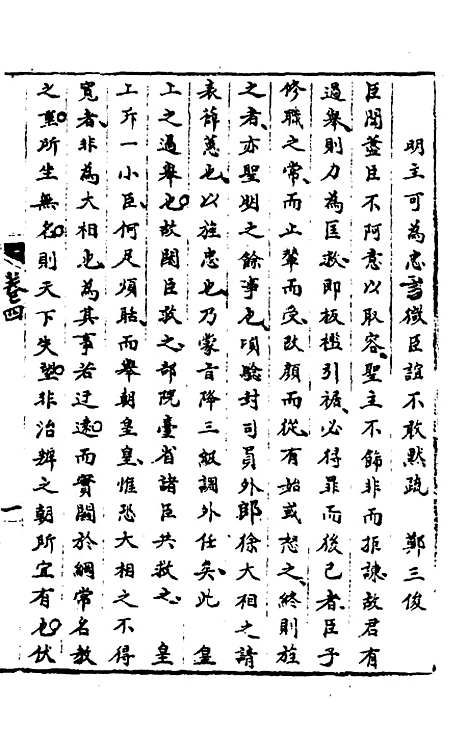 明主可為忠言微臣誼不敢默疏　鄭三俊
臣聞藎臣不阿意以取容聖主不飾非而拒諫故君有
過舉則力為匡救即板檻引裾必得罪而後已者臣子
修職之常而止輦而受改顏而從有始或怒之終則旌
之者亦聖明之餘事也頃驗封司員外郎徐大相之請
表薛蕙也以旌忠也乃蒙旨降三級調外任矣此　皇
上之過舉也故閣臣救之部院臺省諸臣共救之　皇
上斥一小臣何足煩聒而舉朝皇皇惟恐大相之不得
寬者非為大相也為其事若迂遠而實關於綱常名教
之重所生無名則天下失望非治辨之朝所宜有也伏
卷四
一